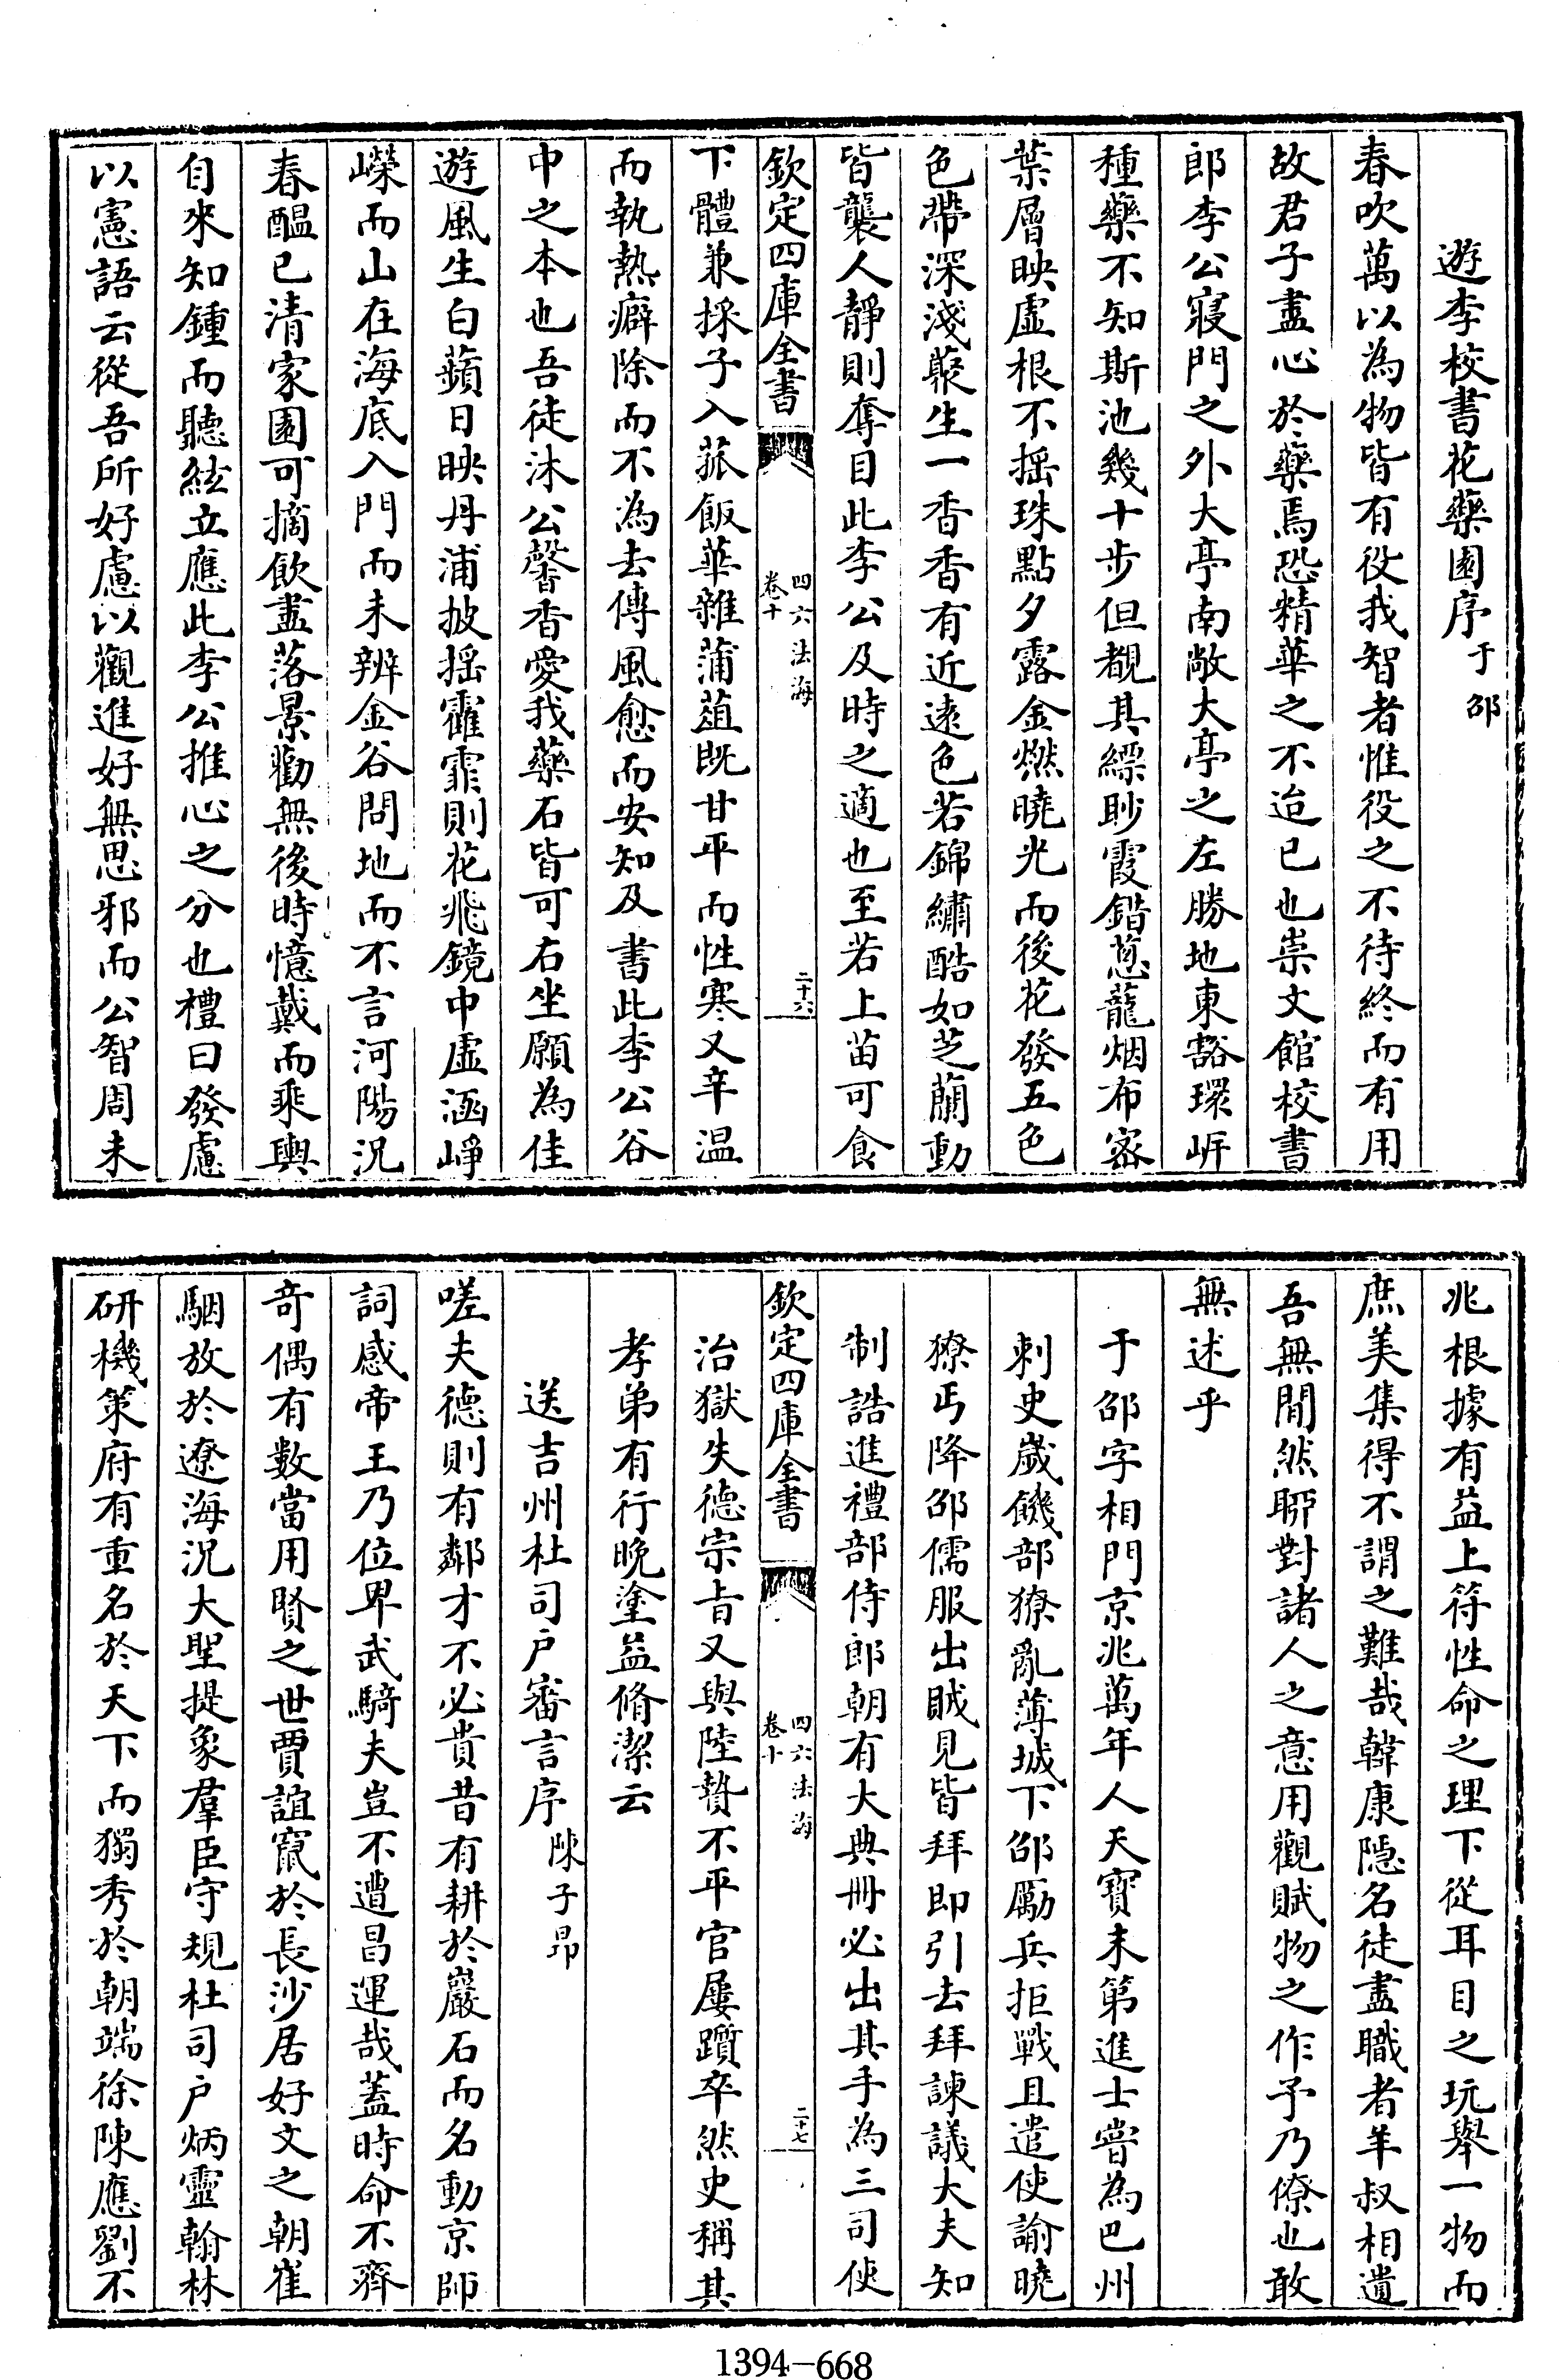 遊李校書花藥園序于邵
春吹萬以為物皆有役我智者惟役之不待終而有用
故君子盡心於藥焉恐精華之不迨已也崇文館校書
郎李公寢門之外大亭南敞大亭之左勝地東豁環岍
種藥不知斯池幾十步但覩其縹眇霞錯葱蘢烟布密
葉層映虛根不搖珠點夕露金燃曉光而後花發五色
色帶深淺藂生一香香有近遠色若錦繡酷如芝蘭動
皆襲人靜則奪目此李公及時之適也至若上苗可食
欽定四庫全書 四六法海卷十 二十六
下體兼採子入菰飯華雜蒲葅既甘平而性寒又辛温
而執熱癖除而不為去傳風愈而安知及書此李公谷
中之本也吾徒沐公馨香愛我藥石皆可右坐願為佳
遊風生白蘋日映丹浦披揺霍霏則花飛鏡中虛涵崢
嶸而山在海底入門而未辨金谷問地而不言河陽況
春醖已清家園可摘飲盡落景勸無後時憶戴而乘輿
自來知鍾而聽絃立應此李公推心之分也禮曰發慮
以憲語云從吾所好慮以觀進好無思邪而公智周未
兆根據有益上符性命之理下從耳目之玩舉一物而
庶美集得不謂之難哉韓康隱名徒盡職者羊叔相遺
吾無間然聊對諸人之意用觀賦物之作予乃僚也敢
無述乎
于邵字相門京兆萬年人天寶末第進士嘗為巴州
刺史歲饑部獠亂薄城下邵勵兵拒戰且遣使諭曉
獠丐降邵儒服出賊見皆拜即引去拜諫議大夫知
制誥進禮部侍郎朝有大典冊必出其手為三司使
欽定四庫全書 四六法海卷十 二十七
治獄失德宗㫖又與陸贄不平官屢躓卒然史稱其
孝弟有行晚塗益脩潔云
送吉州杜司户審言序陳子昂
嗟夫德則有鄰才不必貴昔有耕於巖石而名動京師
詞感帝王乃位卑武騎夫豈不遭昌運哉蓋時命不齊
奇偶有數當用賢之世賈誼竄於長沙居好文之朝崔
駰放於遼海況大聖提象羣臣守規杜司户炳靈翰林
研機策府有重名於天下而獨秀於朝端徐陳應劉不
1394—668